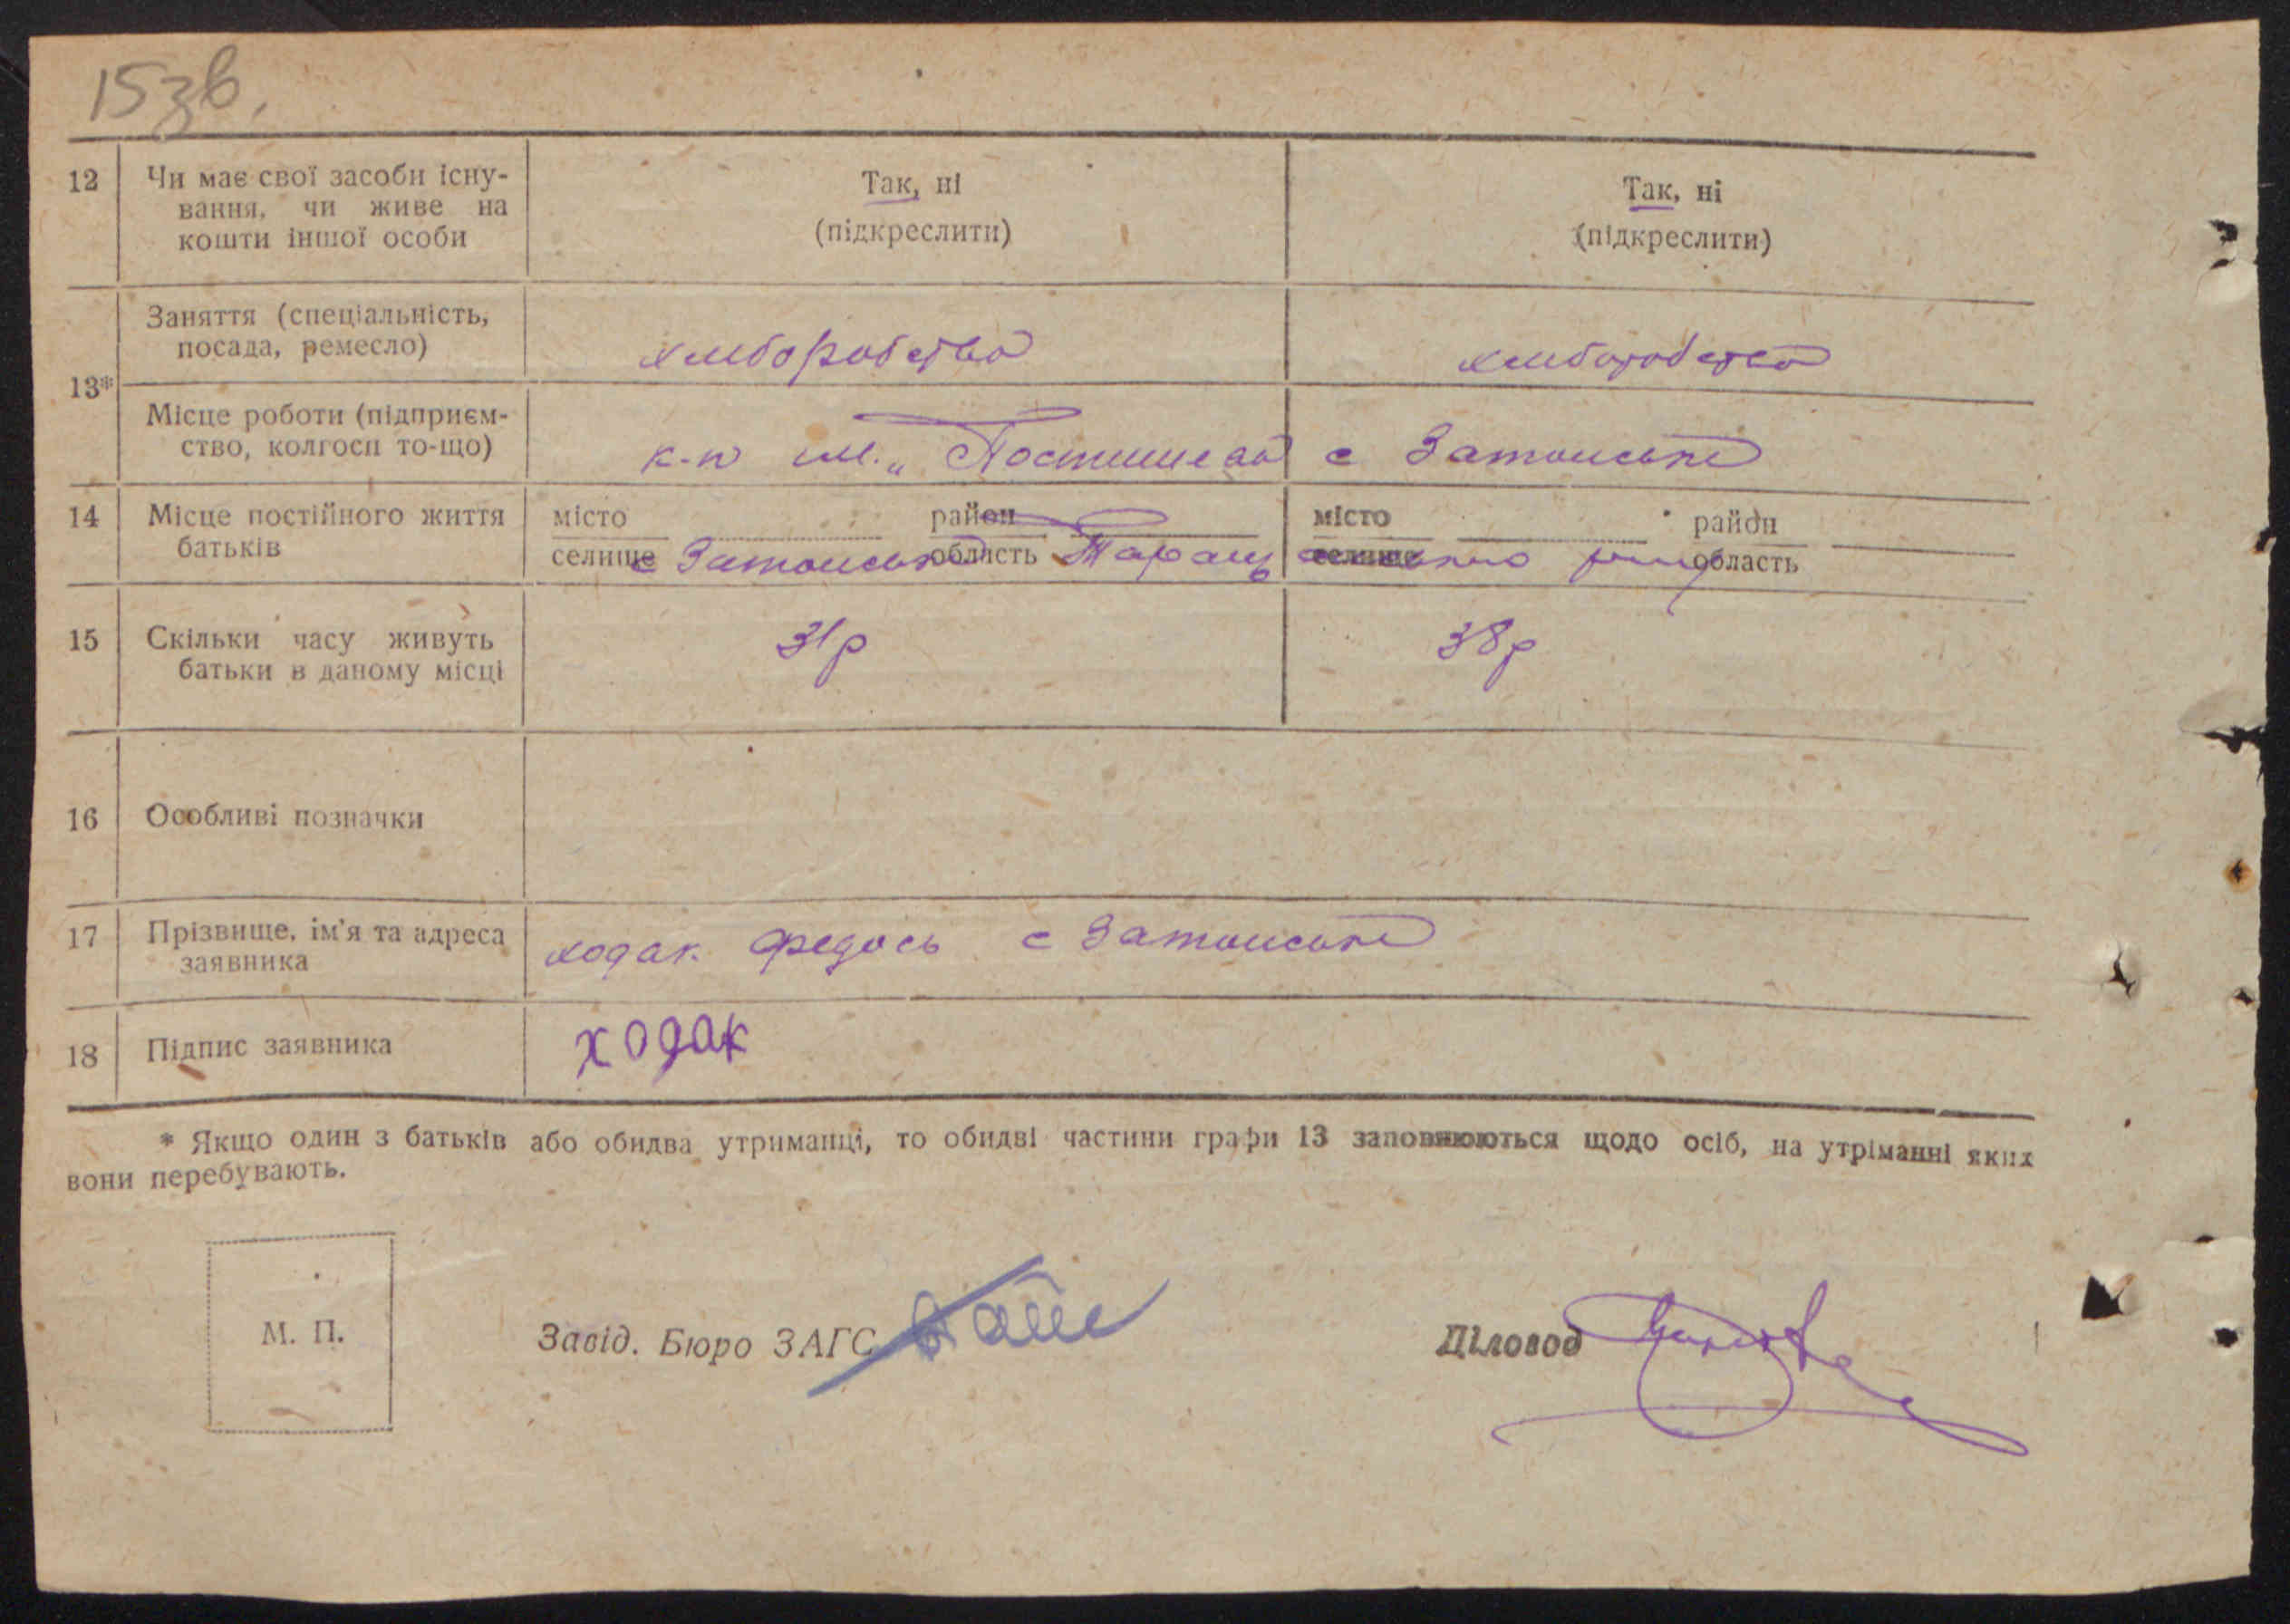 15зв.
12 Чи має свої засоби існу- Так, ні Так, ні
вання, чи живе на (підкреслити) (підкреслити)
кошти іншої особи
13* Заняття (спеціальність, хліборобство хліборобство
посада, ремесло)
Місце роботи (підприєм- к-п ім. „Постишева с Затонське
ство, колгосп то-що)
14 Місце постійного життя місто район місто район
батьків селище с Затонське область Таращ селище область
15 Скільки часу живуть 31р 38р
батьки в даному місці
16 Особливі позначки
17 Прізвище, ім'я та адреса ходак Федось с Затонське
заявника
18 Підпис заявника ходак
* Якщо один з батьків або обидва утриманці, то обидві частини графи 13 заповнюються щодо осіб, на утріманні яких
вони перебувають.
М. П.
Завід. Бюро ЗАГС Діловод